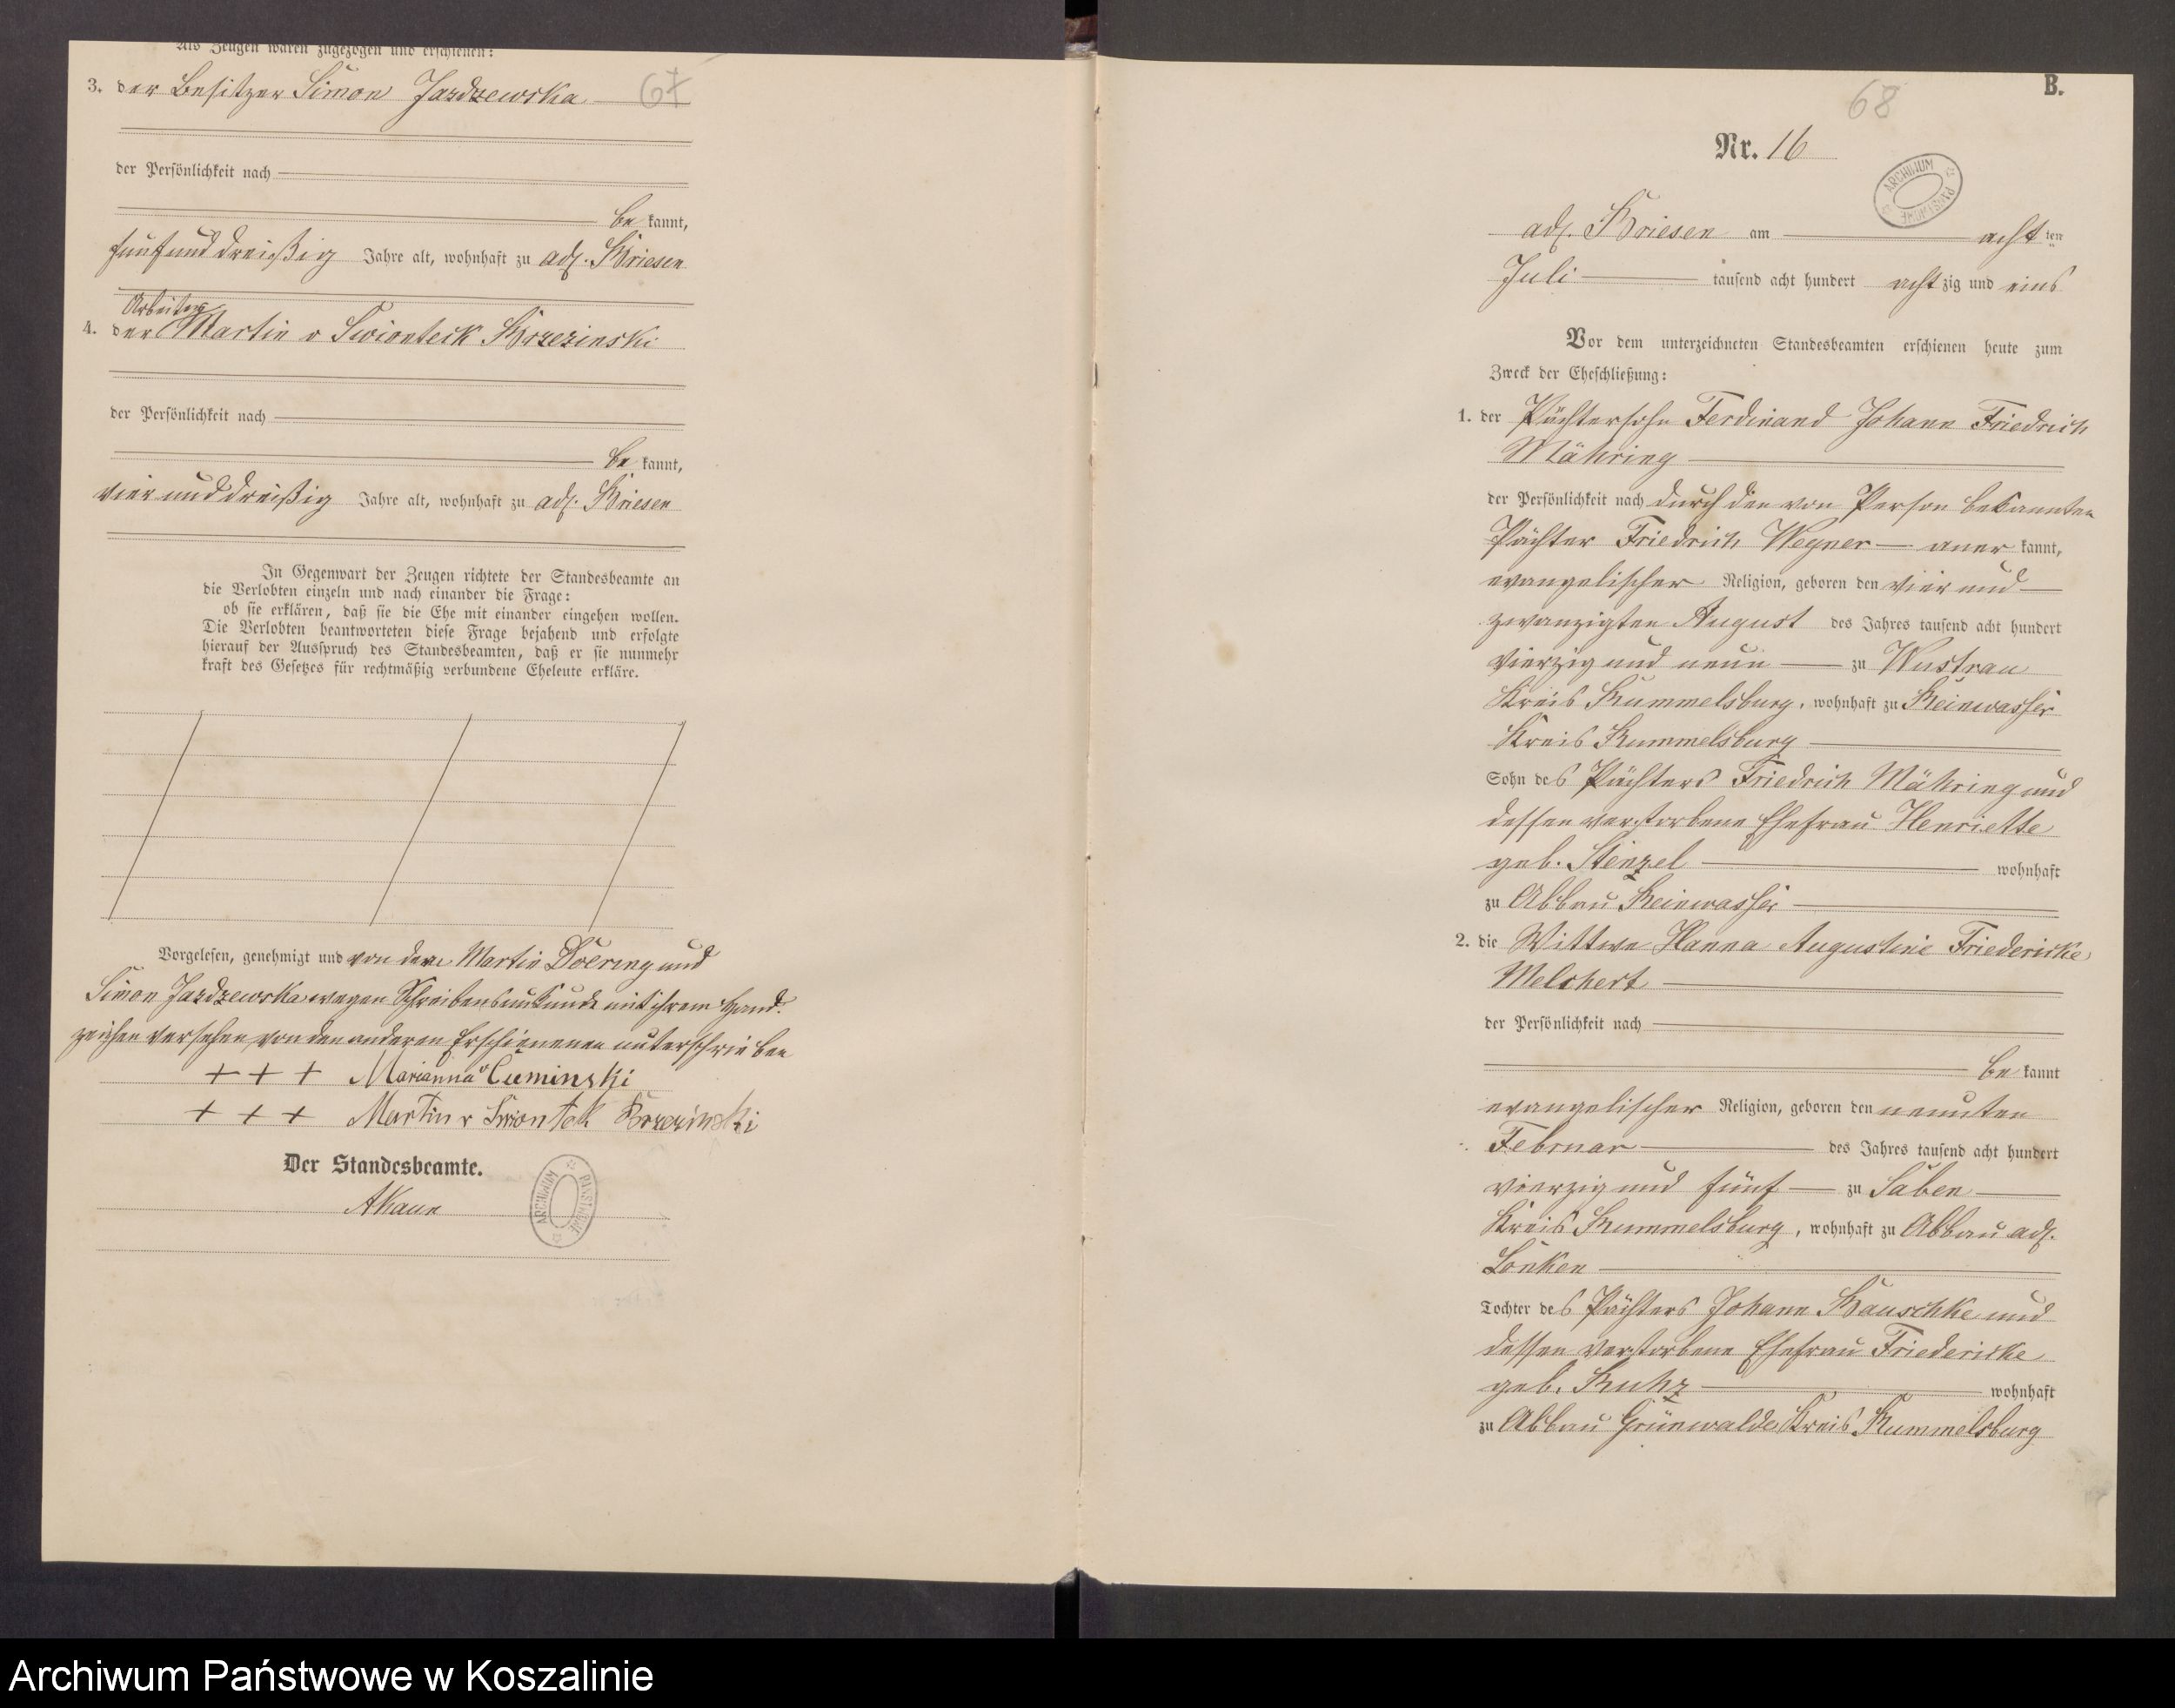 Als Zeugen waren zugezogen und erschienen:
3. der Besitzer Simon Jazdzewska
67
der Persönlichkeit nach
be kannt,
fünfunddreißig Jahre alt, wohnhaft zu adl. Briesen
Arbeiter
4. der Martin v Swionteck Brzezinski
der Persönlichkeit nach
be kannt,
vierunddreißig Jahre alt, wohnhaft zu adl. Briesen
In Gegenwart der Zeugen richtete der Standesbeamte an
die Verlobten einzeln und nach einander die Frage:
ob sie erklären, daß sie die Ehe mit einander eingehen wollen.
Die Verlobten beantworteten diese Frage bejahend und erfolgte
hierauf der Ausspruch des Standesbeamten, daß er sie nunmehr
kraft des Gesetzes für rechtmäßig verbundene Eheleute erkläre.
Vorgelesen, genehmigt und von dem Martin Doering und
Simon Jazdzewska wegen Schreibensunkunde mit ihrem Hand-
zeichen versehen, von den anderen Erschienenen unterschrieben
+ + + Marianna v Czeminski
+ + + Martin v Swiontek Brzezinski
Der Standesbeamte.
AKaun
ARCHIWUM PAŃSTWOWE
B.
68
Nr. 16
ARCHIWUM PAŃSTWOWE
adl. Briesen am acht ten
Juli tausend acht hundert achtzig und eins
Vor dem unterzeichneten Standesbeamten erschienen heute zum
Zweck der Eheschließung:
1. der Pächtersohn Ferdinand Johann Friedrich
Mähring
der Persönlichkeit nach durch den von Person bekannten
Pächter Friedrich Wegner aner kannt,
evangelischer Religion, geboren den vier und
zwanzigten August des Jahres tausend acht hundert
vierzig und neun zu Wustrau
Kreis Rummelsburg, wohnhaft zu Reinwasser
Kreis Rummelsburg
Sohn des Pächters Friedrich Mähring und
dessen verstorbene Ehefrau Henriette
geb. Stenzel wohnhaft
zu Abbau Reinwasser
2. die Wittwe Hanna Augustine Friedericke
Melchert
der Persönlichkeit nach
be kannt
evangelischer Religion, geboren den neunten
Februar des Jahres tausend acht hundert
vierzig und fünf zu Saben
Kreis Rummelsburg, wohnhaft zu Abbau adl.
Lonken
Tochter des Pächters Johann Bauschke und
dessen verstorbene Ehefrau Friedericke
geb. Ruhz wohnhaft
zu Abbau Grünwalde Kreis Rummelsburg
Archiwum Państwowe w Koszalinie